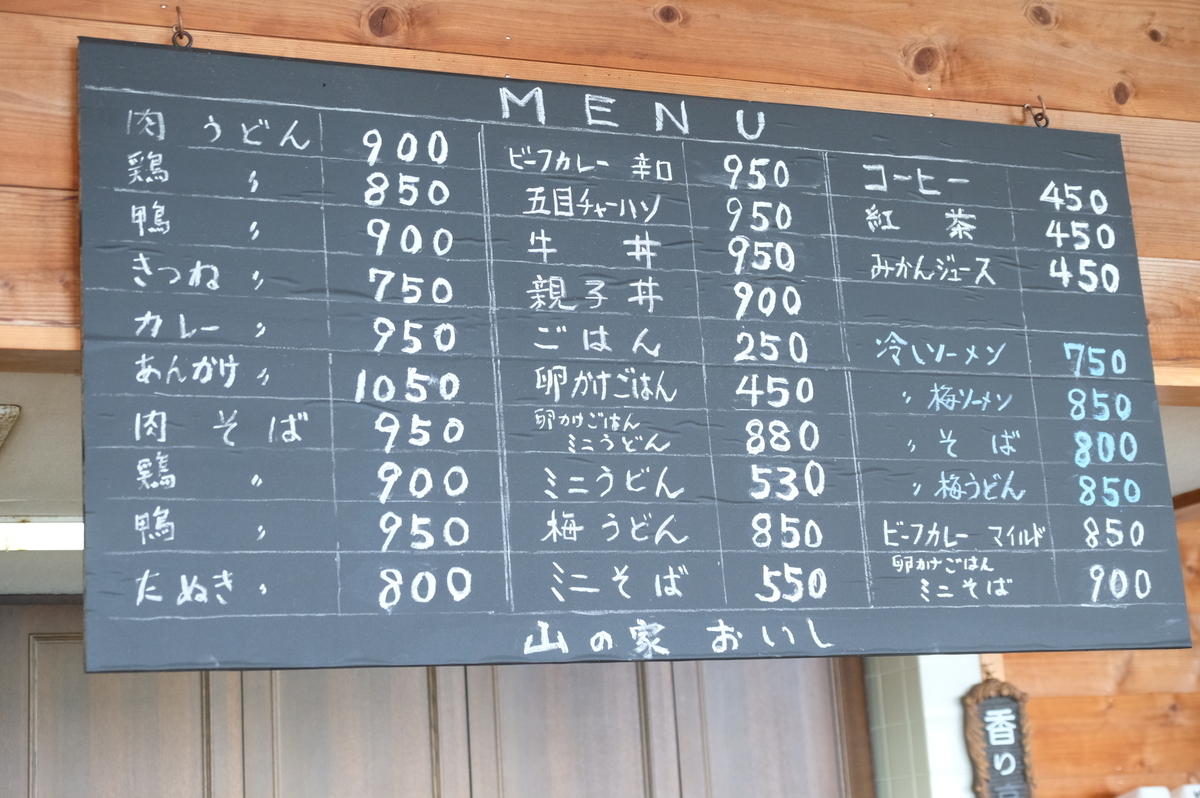 MENU
肉 うどん 900
鶏 〃 850
鴨 〃 900
きつね 〃 750
カレー 〃 950
あんかけ 〃 1050
肉 そば 950
鶏 〃 900
鴨 〃 950
たぬき 〃 800
ビーフカレー 辛口 950
五目チャーハン 950
牛 丼 950
親子丼 900
ごはん 250
卵かけごはん 450
卵かけごはん
ミニうどん 880
ミニうどん 530
梅うどん 850
ミニそば 550
コーヒー 450
紅 茶 450
みかんジュース 450
冷しソーメン 750
〃 梅ソーメン 850
〃 そば 800
〃 梅うどん 850
ビーフカレー マイルド 850
卵かけごはん
ミニそば 900
山の家 おいし
香り